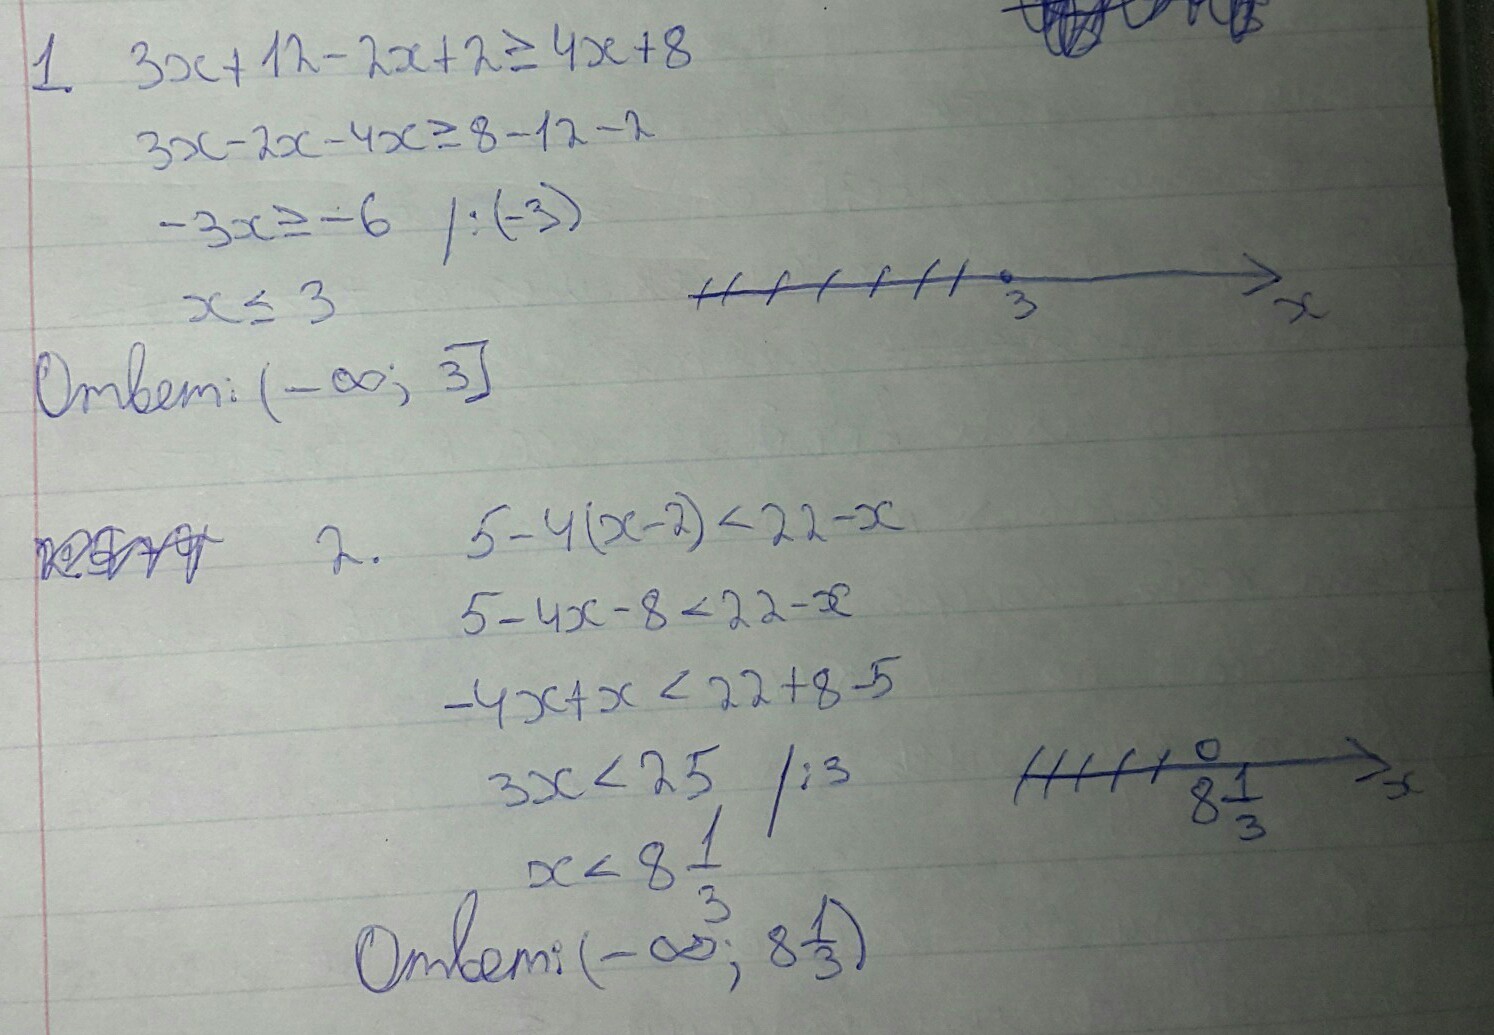 1. 3x+12-2x+2≥4x+8
3x-2x-4x≥8-12-2
-3x≥-6 /:(-3)
x≤3
3
x
Ответ: (-∞; 3]
2. 5-4(x-2)<22-x
5-4x-8<22-x
-4x+x<22+8-5
3x<25 /:3
x<8 1/3
8 1/3
x
Ответ: (-∞; 8 1/3)